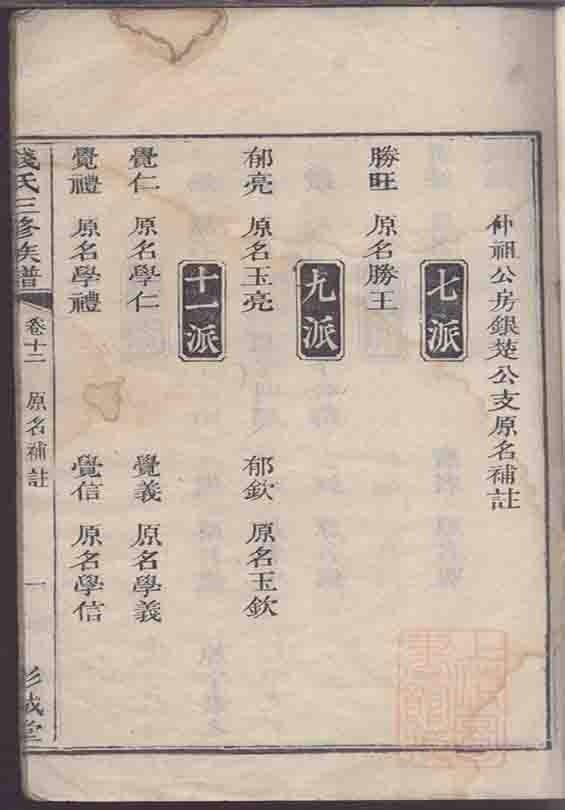 仲祖公房銀楚公支原名補註
七派
勝旺 原名勝王
九派
郁亮 原名玉亮 郁欽 原名玉欽
十一派
覺仁 原名學仁 覺義 原名學義
覺禮 原名學禮 覺信 原名學信
錢氏三修族譜 卷十二 原名補註 一 彭城堂